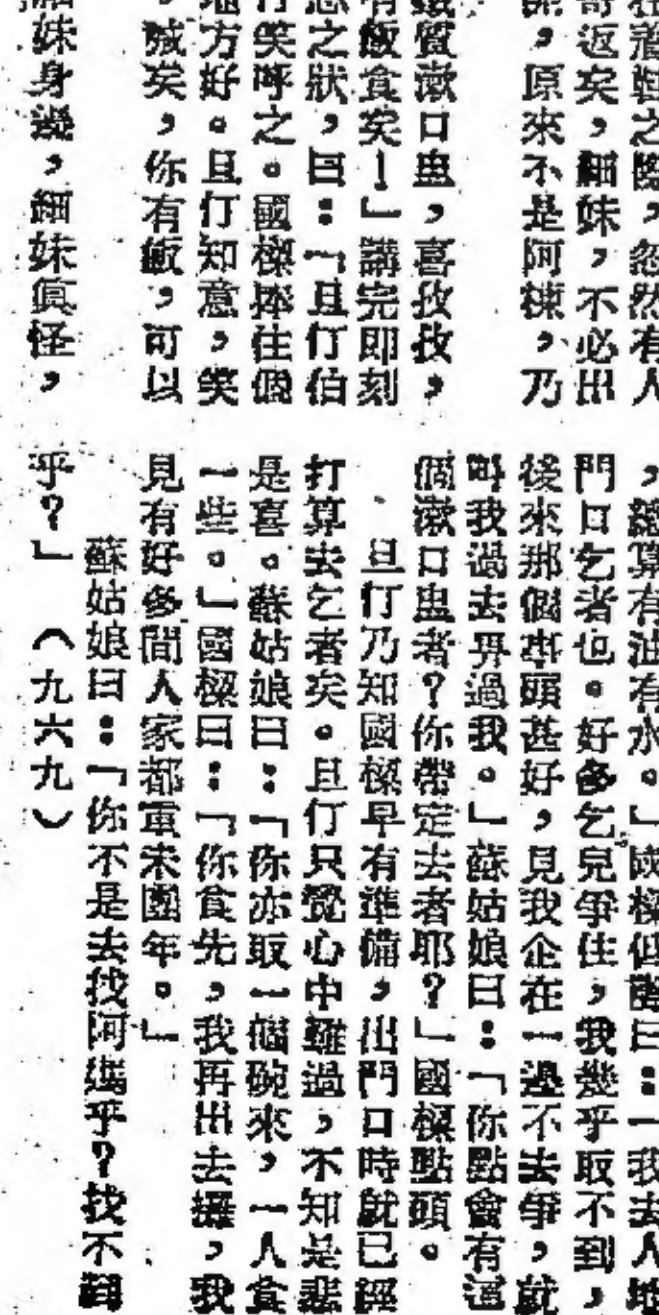 在着鞋之際,忽然有人
哥返矣,細妹,不必出
,原來不是阿棟,乃
質漱口盅,喜孜孜,
有飯食矣!」講完即刻
之狀,曰:「且仃伯
笑呼之。國樑捧住個
方好。且仃知意,笑
,喊矣,你有飯,可以
妹身邊,細妹眞怪,
,總算有油有水。」國樑但語曰:「我去人哋
門口乞者也。好多乞兒爭住,我幾乎取不到,
後來那個事頭甚好,見我企在一邊不去爭,就
叫我過去畀過我。」蘇姑娘曰:「你點會有這
個漱口盅者?你帶定去者耶?」國樑點頭。
且仃乃知國樑早有準備,出門口時就已經
打算去乞者矣。且仃只覺心中難過,不知是悲
是喜。蘇姑娘曰:「你亦取一個碗來,一人食
一些。」國樑曰:「你食先,我再出去攞,我
見有好多間人家都重未團年。」
蘇姑娘曰:「你不是去找阿媽乎?找不到
乎?」 (九六九)